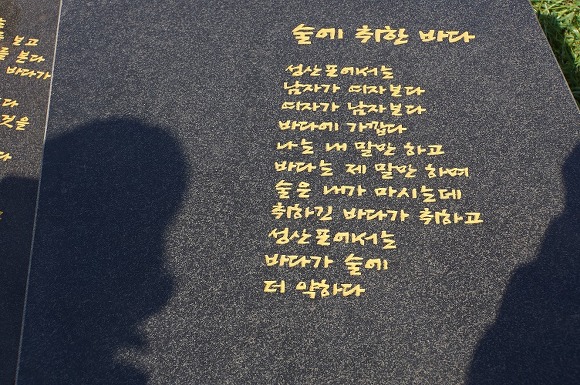 보고
본다
바다가
것을
술에 취한 바다
성산포에서는
남자가 여자보다
여자가 남자보다
바다에 가깝다
나는 내 말만 하고
바다는 제 말만 하며
술을 내가 마시는데
취하긴 바다가 취하고
성산포에서는
바다가 술에
더 약하다